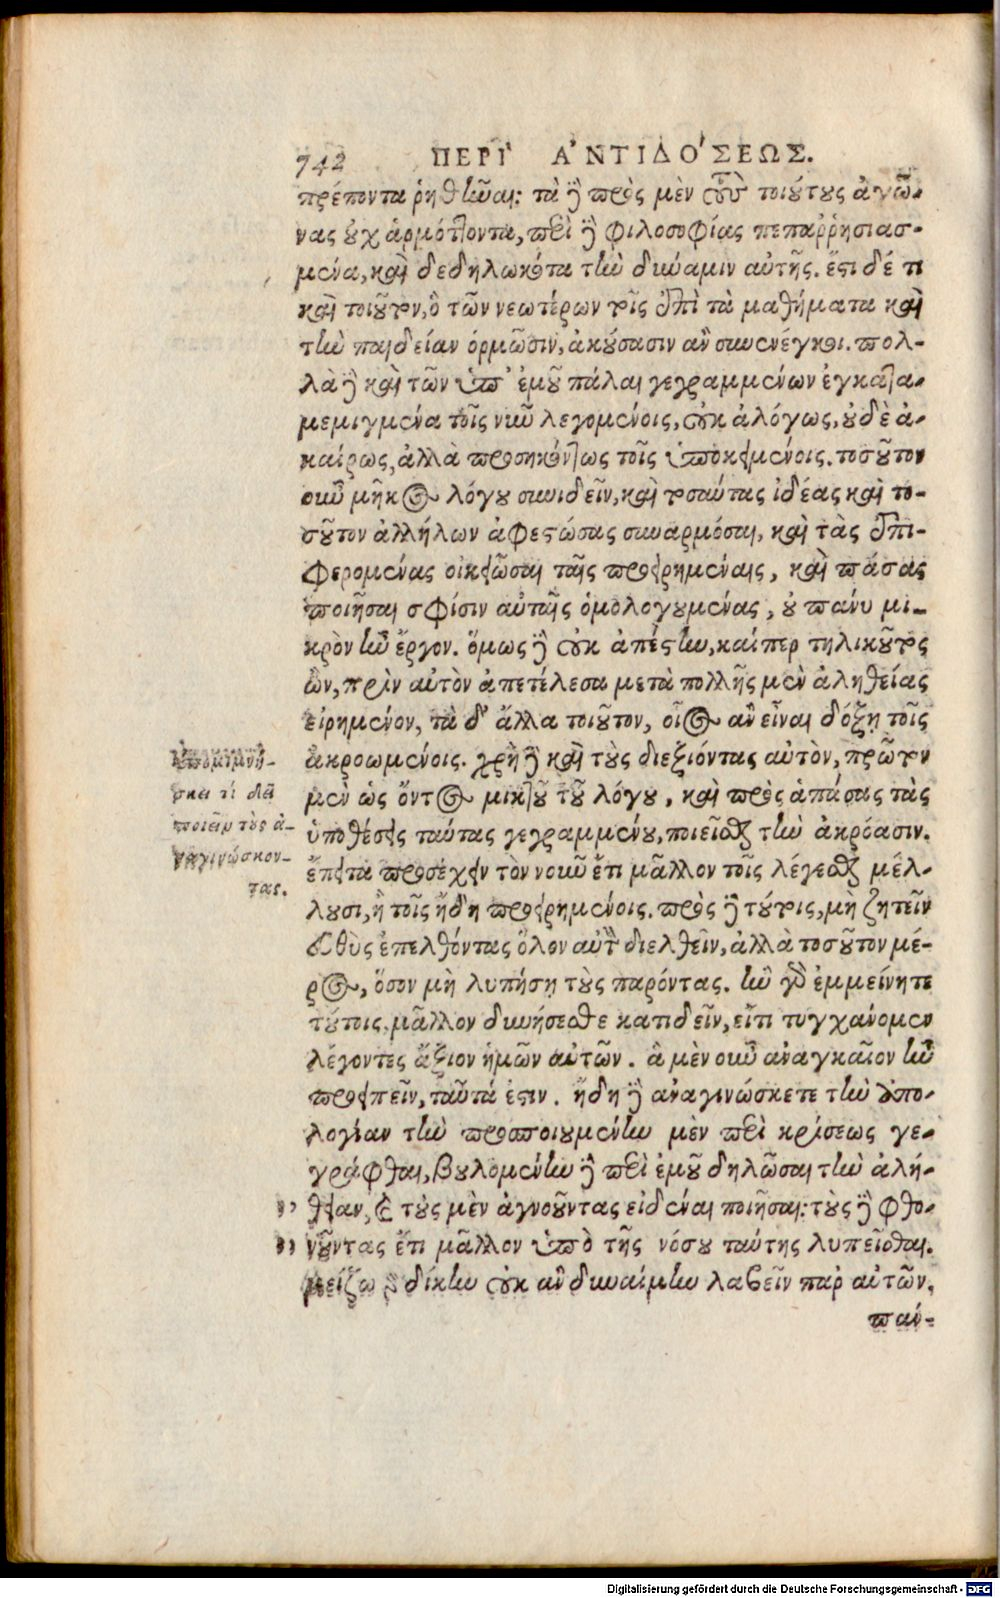 742 ΠΕΡΙ' Α'ΝΤΙΔΟ'ΣΕΩΣ.
πρέποντα ῥηθῆναι: τὰ δὲ πρὸς μὲν τοὺς τοιούτους ἀγῶ-
νας οὐχ ἁρμόττοντα, περὶ δὲ φιλοσοφίας πεπαῤῥησιασ-
μένα, καὶ δεδηλωκότα τὴν δύναμιν αὐτῆς. ἔστι δέ τι
καὶ τοιοῦτον, ὃ τῶν νεωτέρων τοῖς ἐπὶ τὰ μαθήματα καὶ
τὴν παιδείαν ὁρμῶσιν, ἀκούσασιν ἂν συνενέγκοι. πολ-
λὰ δὲ καὶ τῶν ὑπ' ἐμοῦ πάλαι γεγραμμένων ἐγκατα-
μεμιγμένα τοῖς νῦν λεγομένοις, οὐκ ἀλόγως, οὐδὲ ἀ-
καίρως, ἀλλὰ προσηκόντως τοῖς ὑποκειμένοις. τοσοῦτον
οὖν μῆκος λόγου συνιδεῖν, καὶ τοσαύτας ἰδέας καὶ το-
σοῦτον ἀλλήλων ἀφεστώσας συναρμόσαι, καὶ τὰς ἐπι-
φερομένας οἰκειῶσαι ταῖς προειρημέναις, καὶ πάσας
ποιῆσαι σφίσιν αὐταῖς ὁμολογουμένας, οὐ πάνυ μι-
κρὸν ἦν ἔργον. ὅμως δὲ οὐκ ἀπέστην, καίπερ τηλικοῦτος
ὢν, πρὶν αὐτὸν ἀπετέλεσα μετὰ πολλῆς μὲν ἀληθείας
εἰρημένον, τὰ δ' ἄλλα τοιοῦτον, οἷος ἂν εἶναι δόξῃ τοῖς
ἀκροωμένοις. χρὴ δὲ καὶ τοὺς διεξιόντας αὐτὸν, πρῶτον
μὲν ὡς ὄντος μικτοῦ τοῦ λόγου, καὶ πρὸς ἁπάσας τὰς
ὑποθέσεις ταύτας γεγραμμένου, ποιεῖσθαι τὴν ἀκρόασιν.
ἔπειτα προσέχειν τὸν νοῦν ἔτι μᾶλλον τοῖς λέγεσθαι μέλ-
λουσι, ἢ τοῖς ἤδη προειρημένοις. πρὸς δὲ τούτοις, μὴ ζητεῖν
εὐθὺς ἐπελθόντας ὅλον αὐτὸν διελθεῖν, ἀλλὰ τοσοῦτον μέ-
ρος, ὅσον μὴ λυπήσῃ τοὺς παρόντας. ἢν γὰρ ἐμμείνητε
τούτοις, μᾶλλον δυνήσεσθε κατιδεῖν, εἴ τι τυγχάνομεν
λέγοντες ἄξιον ἡμῶν αὐτῶν. ἃ μὲν οὖν ἀναγκαῖον ἦν
προειπεῖν, ταῦτά ἐστιν. ἤδη δὲ ἀναγινώσκετε τὴν ἀπο-
λογίαν τὴν προσποιουμένην μὲν περὶ κρίσεως γε-
γράφθαι, βουλομένην δὲ περὶ ἐμοῦ δηλῶσαι τὴν ἀλή-
θειαν, καὶ τοὺς μὲν ἀγνοοῦντας εἰδέναι ποιῆσαι: τοὺς δὲ φθο-
νοῦντας ἔτι μᾶλλον ὑπὸ τῆς νόσου ταύτης λυπεῖσθαι.
μείζω γὰρ δίκην οὐκ ἂν δυναίμην λαβεῖν παρ' αὐτῶν.
παν-
ὑπομιμνή-
σκει τί δεῖ
ποιεῖν τοὺς ἀ-
ναγινώσκον-
τας.
Digitalisierung gefördert durch die Deutsche Forschungsgemeinschaft - DFG